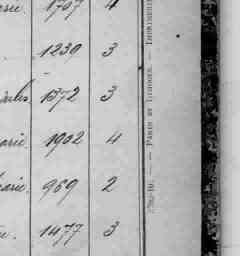 arie. 1707 4
1239 3
arles 1372 3
arie. 1902 4
arie. 969 2
1477 3
PARIS ET LIMOGES. — IMPRIMERIE